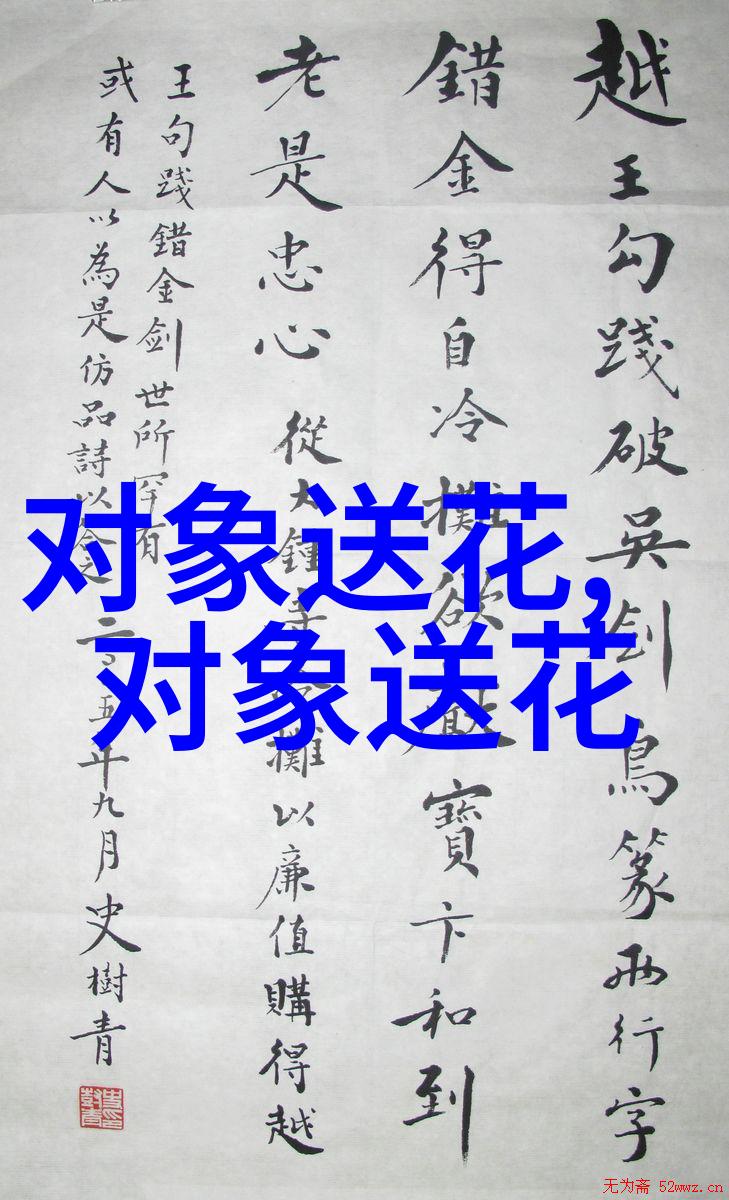 越王勾踐破吳劍鳥篆兩行字
錯金得自冷攤欲獻寶卞和到
老是忠心 從大鐘攤以廉值購得越
王句踐錯金劍世所罕有
或有人以為是仿品詩以之 二〇〇五年九月史樹青
对象送花,
对象送花
无为斋 52wwz.cn